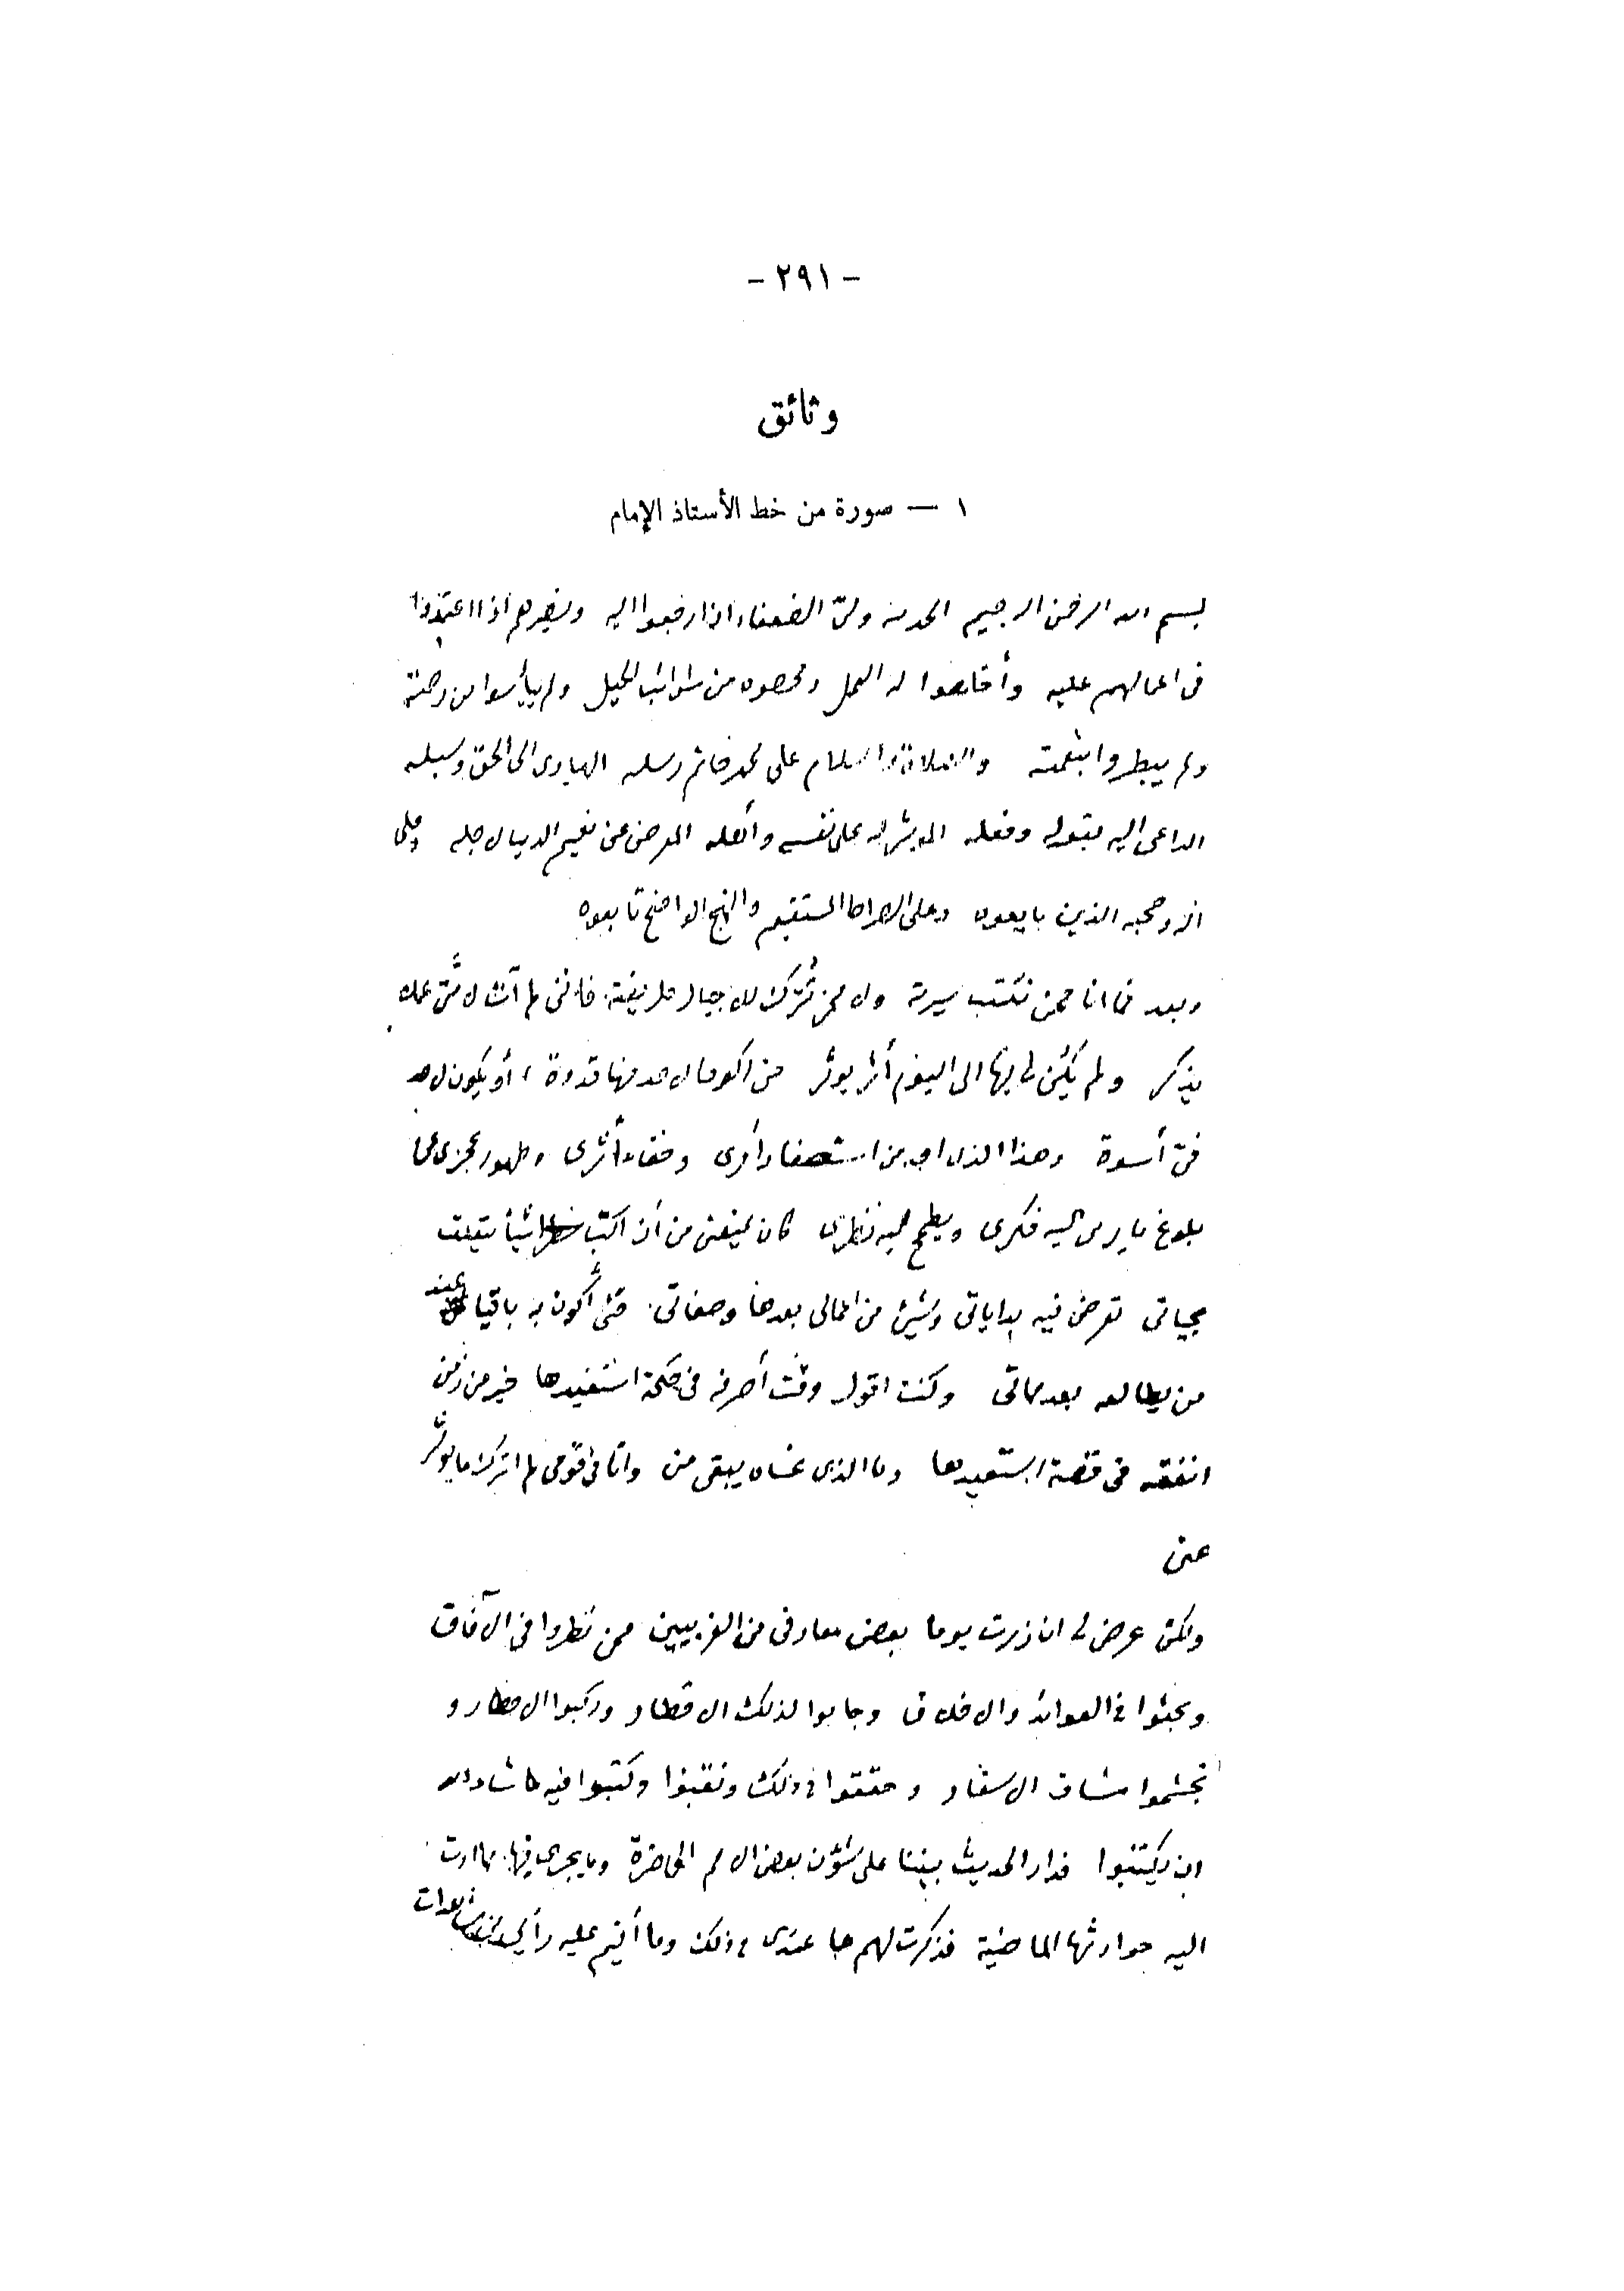 - ٢٩١ -
وثائق
١ — صورة من خط الأستاذ الإمام
بسم الله الرحمن الرحيم الحمد لله ولىّ الضعفاء اذا رجعوا اليه ونصيرهم اذا اعتمدوا
فى اعمالهم عليه وأخلصوا له العمل ومحصوه من شوائب الحيل ولم ييأسوا من رحمته
ولم يبطروا بنعمته والصلاة والسلام على محمد خاتم رسله الهادى الى الحق وسبله
الداعى اليه بقوله وفعله المؤثر له على نفسه وأهله المعرض عن نعيم الدنيا لاجله وعلى
اله وصحبه الذين بايعوه وعلى الصراط المستقيم والنهج الواضح تابعوه
وبعد فما انا ممن تكتب سيرته ولا ممن تُترك للاجيال طريقته فاننى لم آت لامتى عملا
يذكر ولم يكن لى فيها الى اليوم أثر يؤثر حتى اكون لاحد منها قدوة ، أو يكون لاحد
فىّ أسوة وهذا الذى اجد من استصغار أمرى وخفاء أثرى وظهور عجزى عن
بلوغ ما يرمى اليه فكرى ويطمح اليه نظرى كان يمنعنى من أن اكتب شيئا يتعلق
بحياتى تعرض فيه بداياتى وشىء من اعمالى بعدها وصفاتى. حتى أكون به باقيا عند
من يطالعه بعد مماتى وكنت اقول وقت أصرفه فى حكمة استفيدها خير من زمن
انفقه فى قصة استعيدها وما الذى عساه يبقى منى وانا فى قومى لم اترك ما يؤثر
عنى
ولكن عرض لى ان زرت يوما بعض معارفى من الغربيين ممن نظروا فى الآفاق
وبحثوا فى العوائد والاخلاق وجابوا لذلك الاقطار وركبوا الاخطار و
تجشموا مشاق الاسفار وحققوا فى ذلك ونقبوا وكتبوا فيه ما شاء الله
ان يكتبوا فدار الحديث بيننا على شئون بعض الامم الحاضرة وما يجرى فيها مما ادت
اليه حوادثها الماضية فذكرت لهم ما عندى فى ذلك وما أقيم عليه رأيى